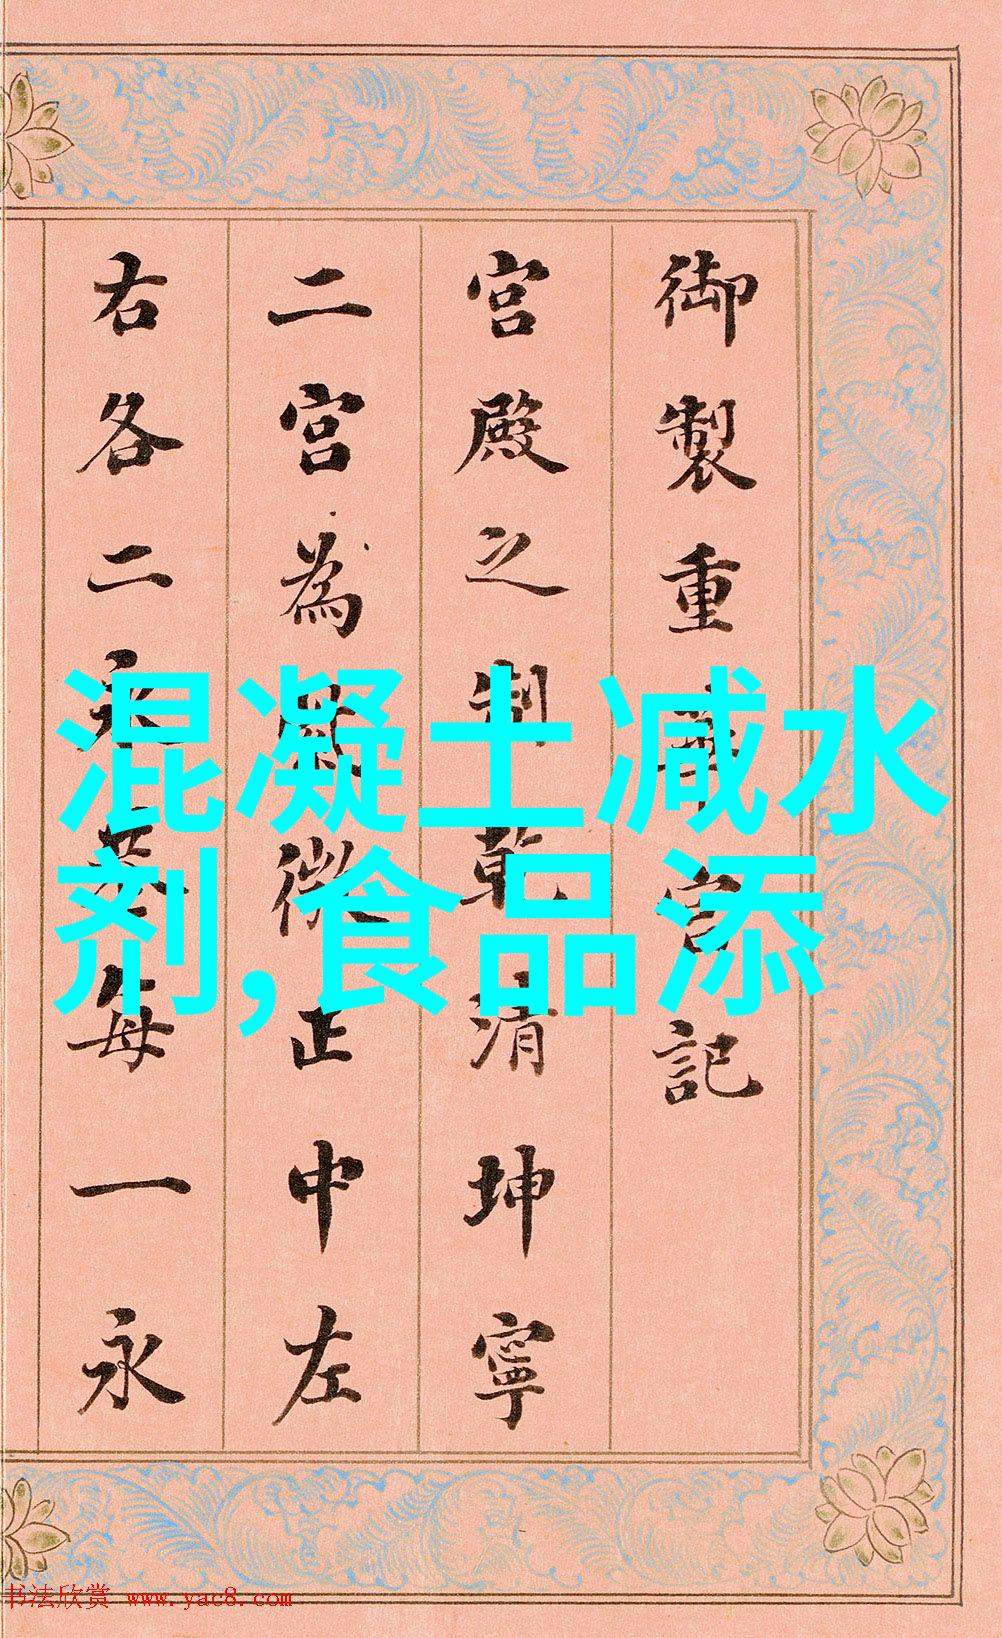 御製重華宮記
宮殿之制乾清坤寧
二宮為微正中左
右各二永巷每一永
混凝土减水
剂,食品添
书法欣赏 www.yac8.com